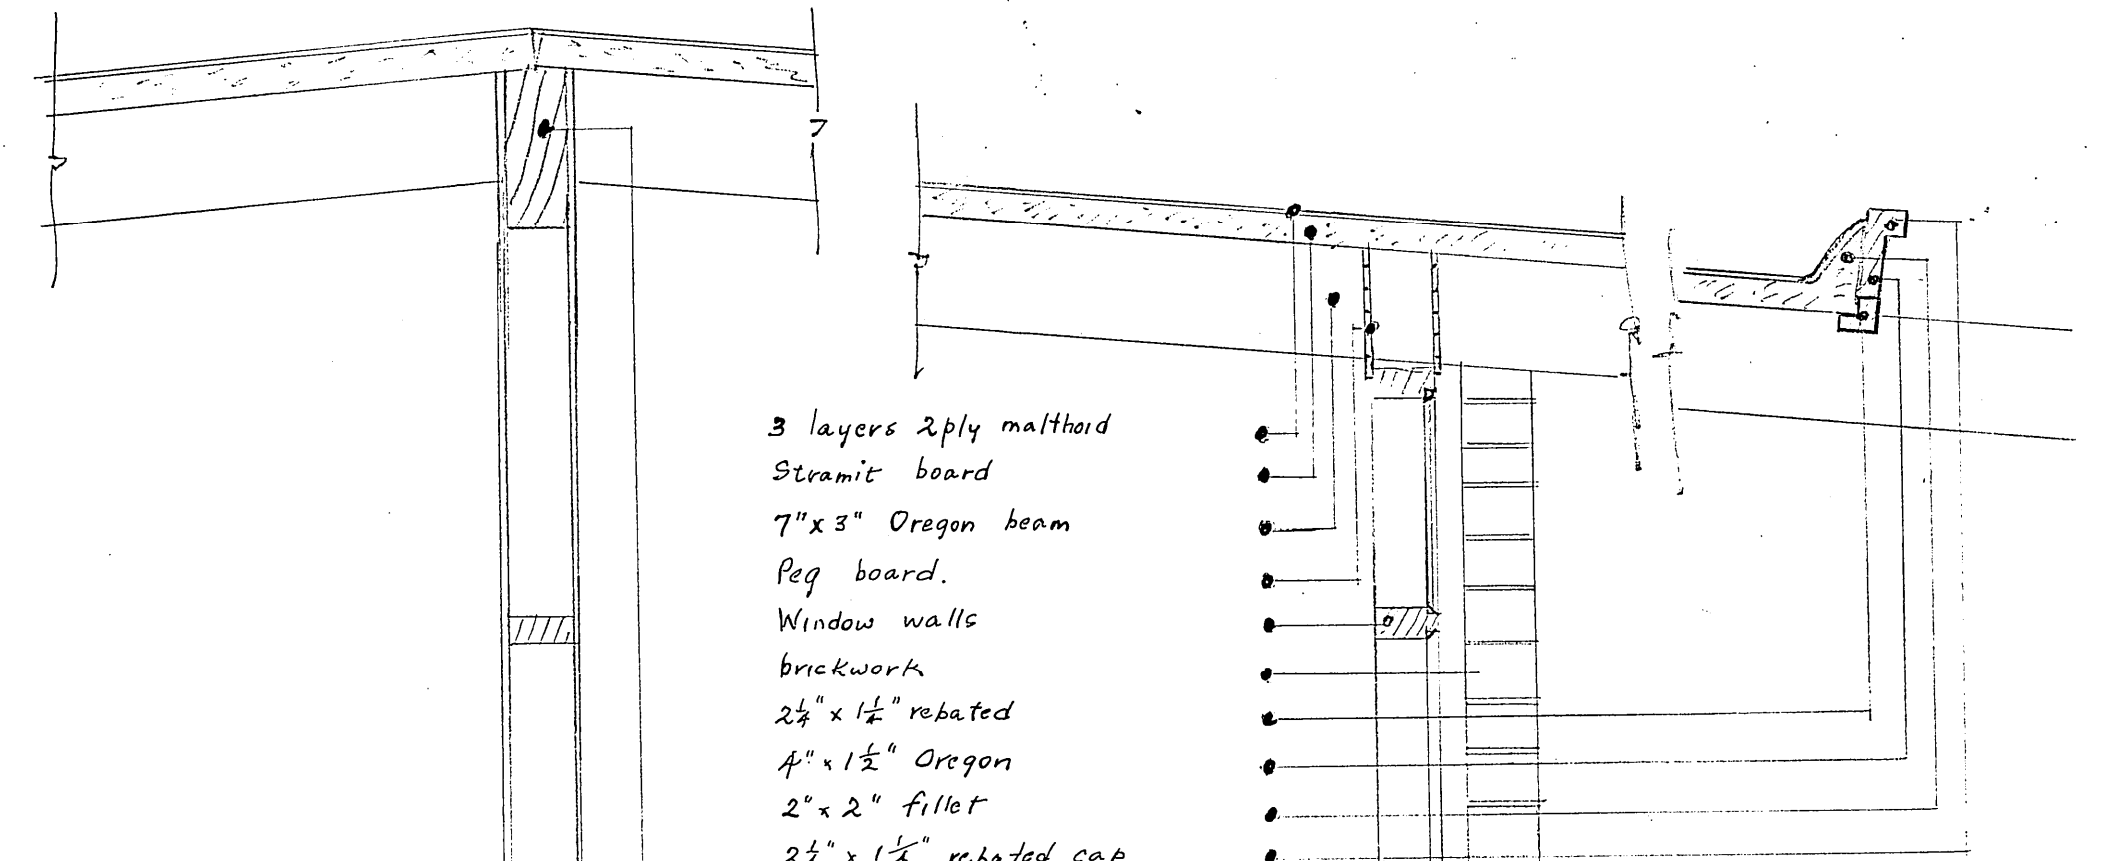 3 layers 2ply malthoid
Stramit board
7" x 3" Oregon beam
Peg board.
Window walls
brickwork
2¼" x 1¼" rebated
4" x 1½" Oregon
2" x 2" fillet
2¼" x 1¼" rebated cap